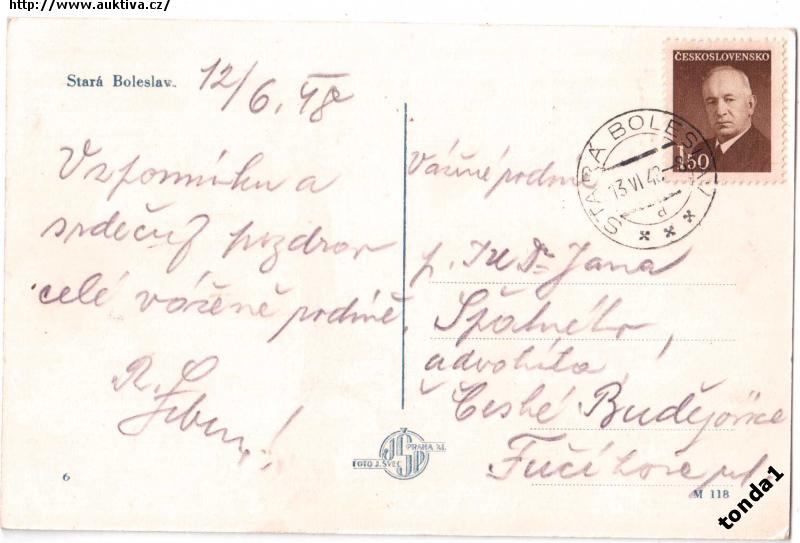 http://www.auktiva.cz/
Stará Boleslav.
12/6. 48
Vzpomínku a
srdečný pozdrav
celé vážené rodině.
R.
ČESKOSLOVENSKO
1.50
STARÁ BOLESLAV
13 VI 48
d
Vážené rodině
p. JUDr Jana
Špátného,
advokáta,
České Budějovice
Fučíkova ul
JŠP
PRAHA XI.
FOTO J. ŠVEC
6
M 118
tonda1